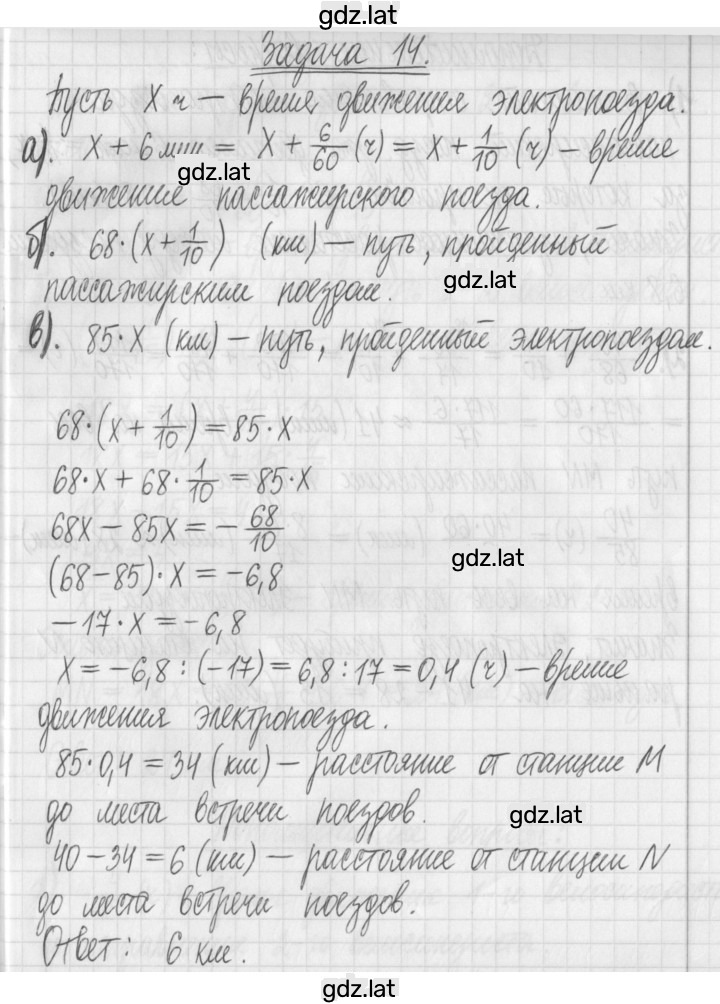 gdz.lat
Задача 14.
Пусть x ч — время движения электропоезда.
а). x + 6 мин = x + 6/60 (ч) = x + 1/10 (ч) — время
gdz.lat
движения пассажирского поезда.
б). 68·(x + 1/10) (км) — путь, пройденный
gdz.lat
пассажирским поездом.
в). 85·x (км) — путь, пройденный электропоездом.
68·(x + 1/10) = 85·x
68·x + 68·1/10 = 85·x
68x − 85x = −68/10
gdz.lat
(68−85)·x = −6,8
−17·x = −6,8
x = −6,8 : (−17) = 6,8 : 17 = 0,4 (ч) — время
движения электропоезда.
85·0,4 = 34 (км) — расстояние от станции M
до места встречи поездов.
gdz.lat
40−34 = 6 (км) — расстояние от станции N
до места встречи поездов.
Ответ: 6 км.
gdz.lat